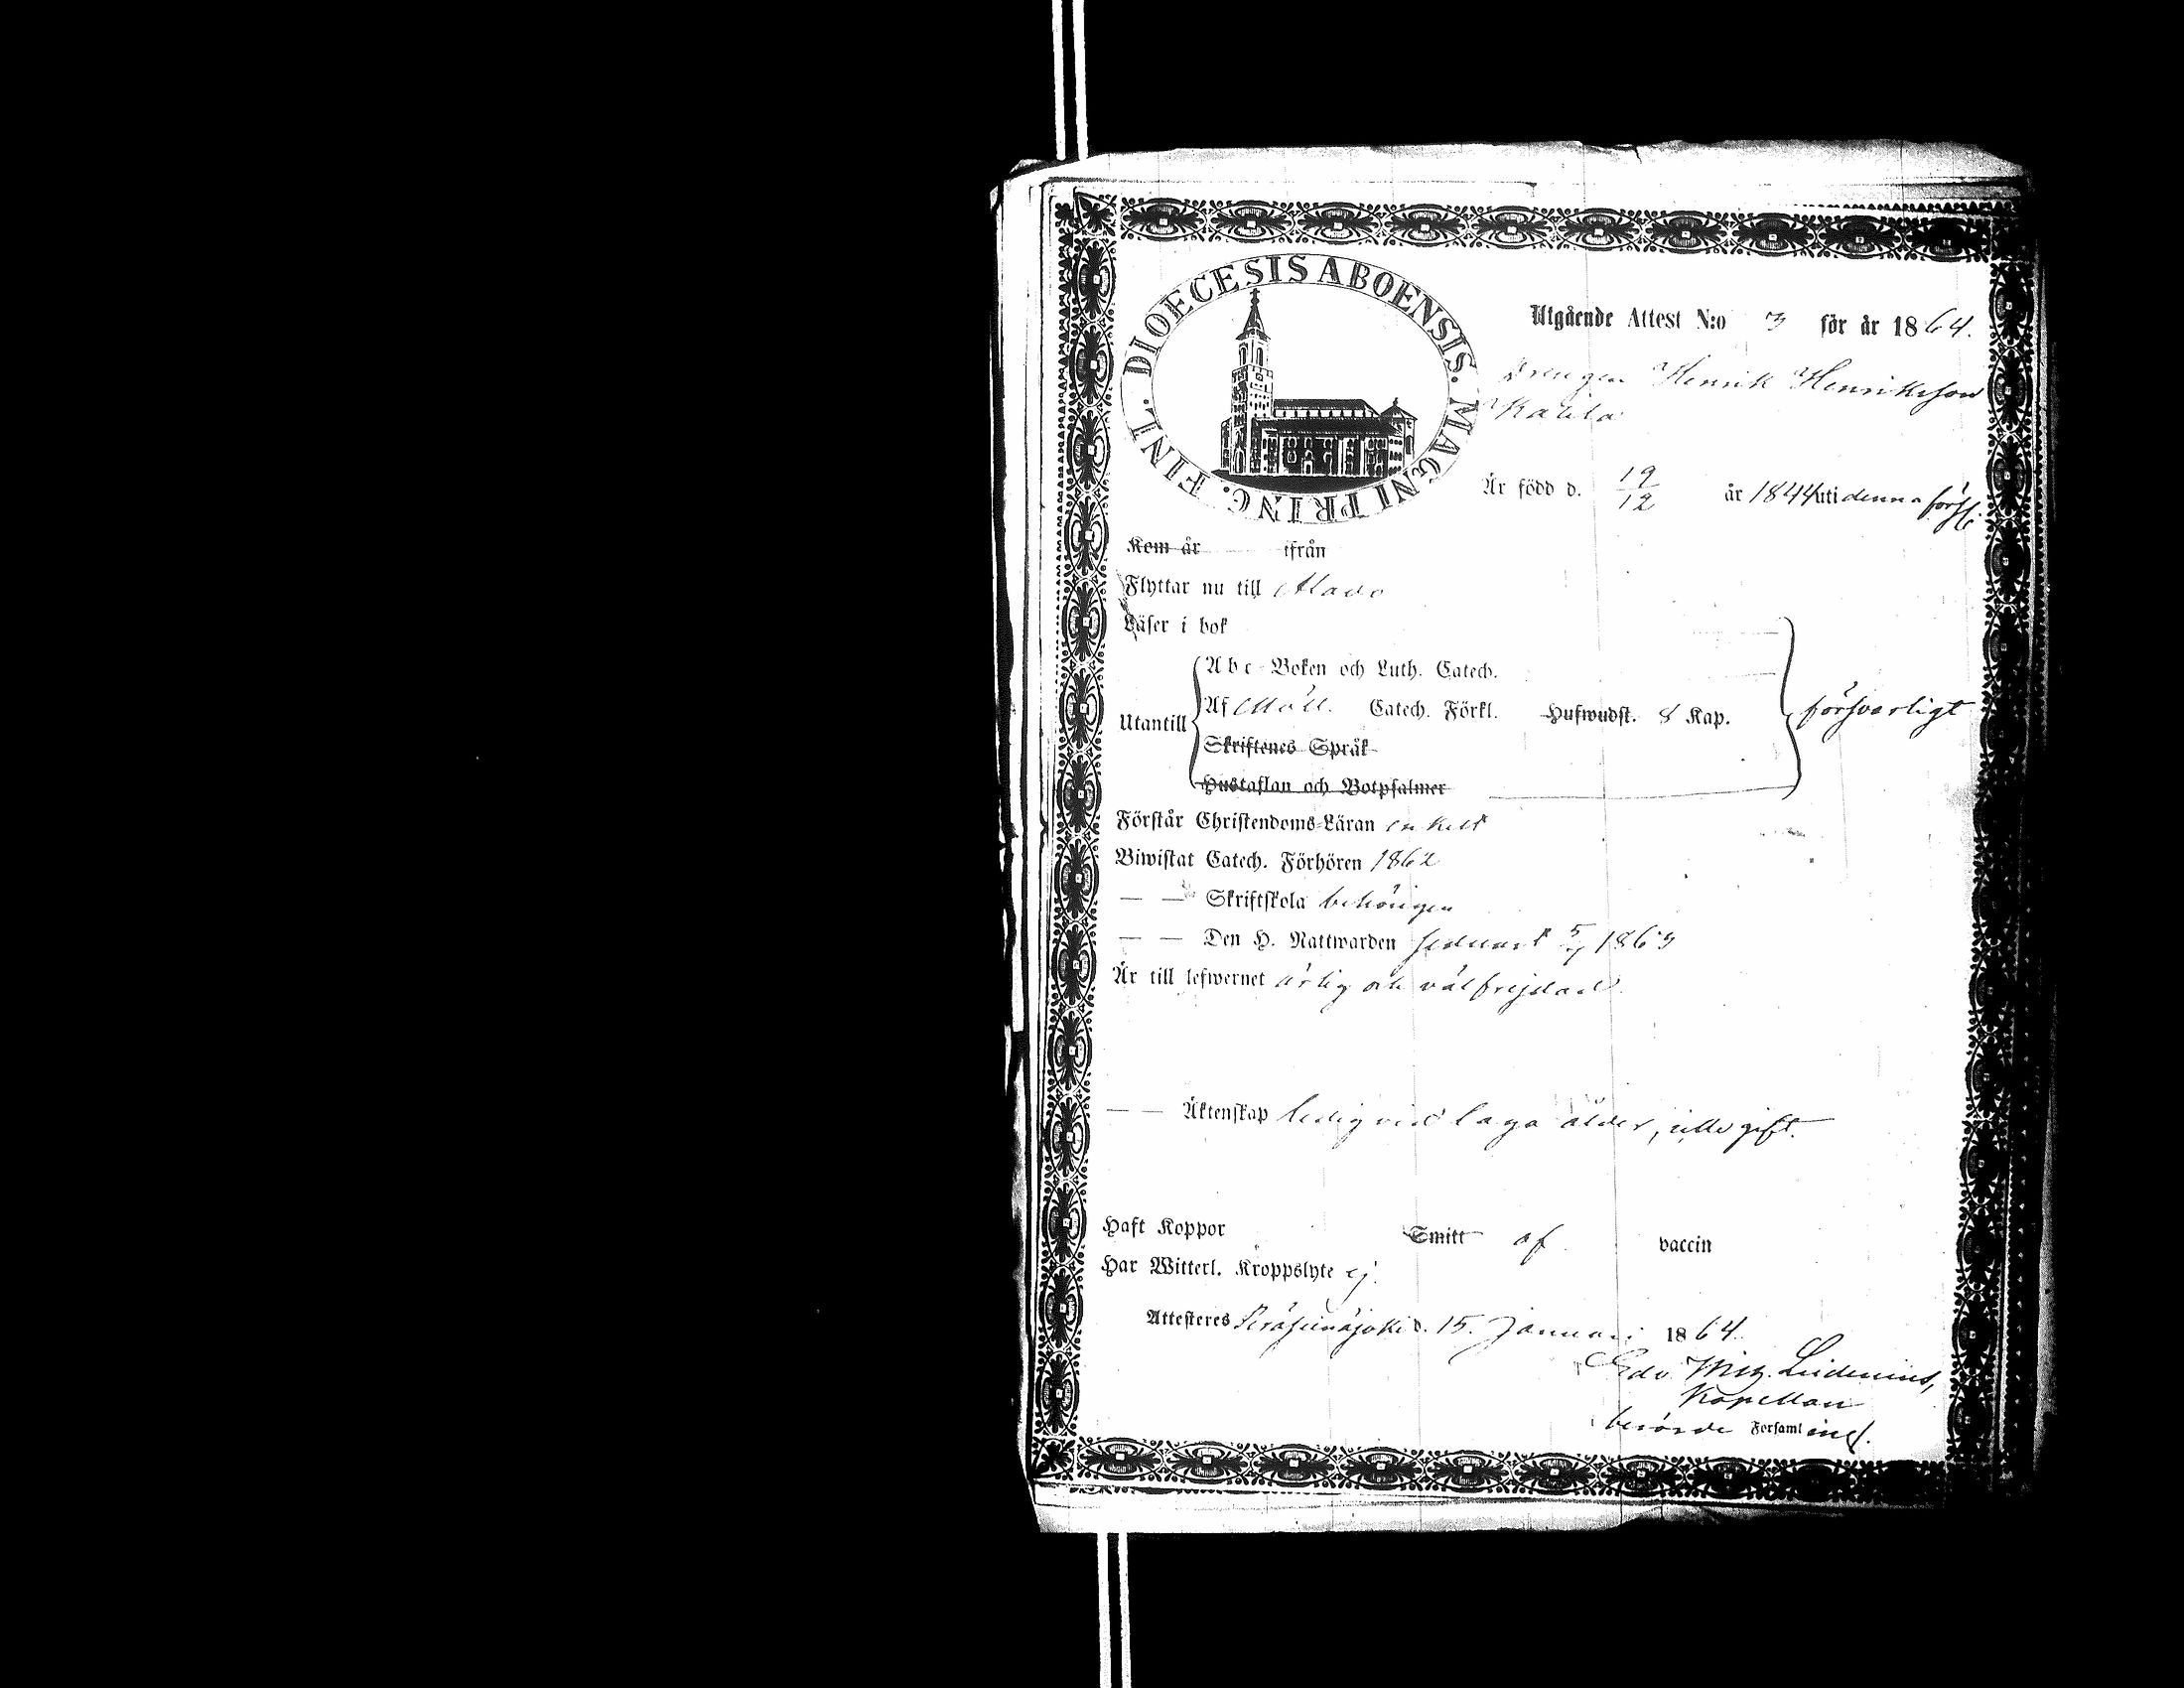 DIOECESIS ABOENSIS. MAGNI PRINC. FINL.
Utgående Attest N:o 3 för år 1864.
Drengen Henrik Henriksson
Är född d. 19/12 år 1844 uti denna förs:
Kom år ifrån
Flyttar nu till Alavo
Läser i bok
Abc-Boken och Luth. Catech.
Utantill Af Möll. Catech. Förkl. Hufwudst. 8 Kap. försvarligt
Skriftenes Språk
Hustaflan och Botpsalmer
Förstår Christendoms-Läran enkelt
Biwistat Catech. Förhören 1862
— — Skriftskola behörigen
— — Den H. Nattwarden senast
Är till lefwernet ärlig och välfrejdad.
— — Äktenskap ledig vid laga ålder, gift.
Haft Koppor Smitt af vaccin
Har Witterl. Kroppslyte ej.
Attesteres Peräseinäjoki d. 15. Januari 1864.
Kapellan
berörde Församl ing.